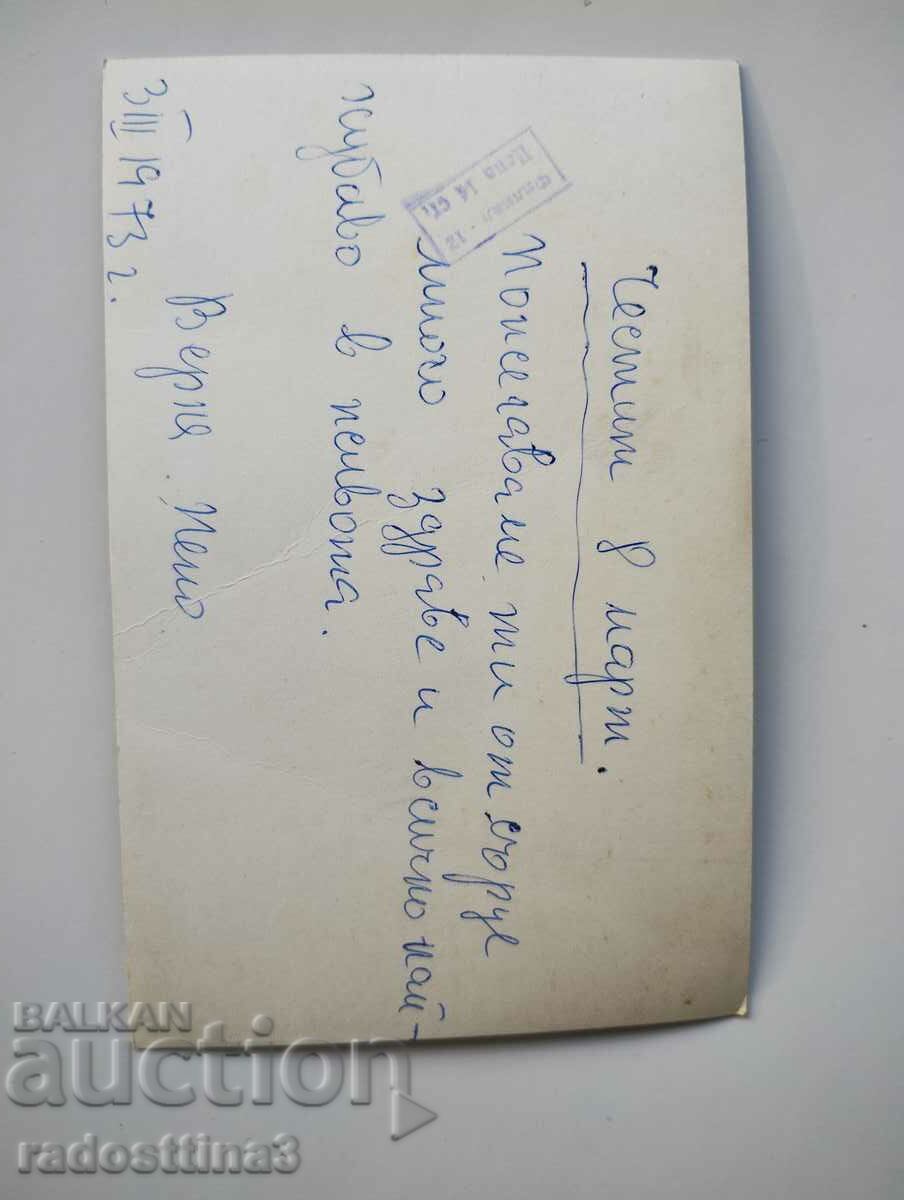 Честит 8 март.
Пожелаваме ти от сърце
много здраве и всичко най-
хубаво в живота.
Верна Пено
3 III 1973 г.
Филиал 12
Цена 14 ст.
BALKAN
auction
radosttina3